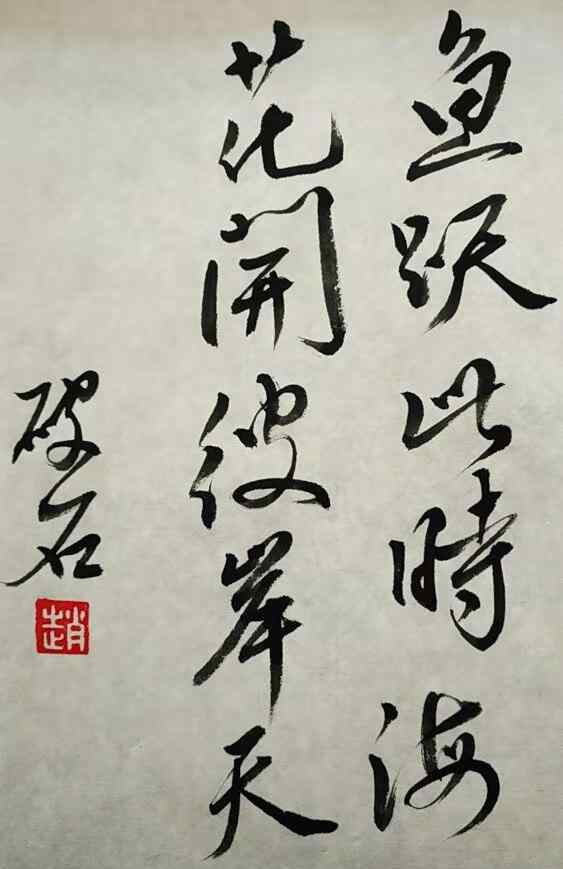 鱼跃此時海
花開彼岸天
破石
趙